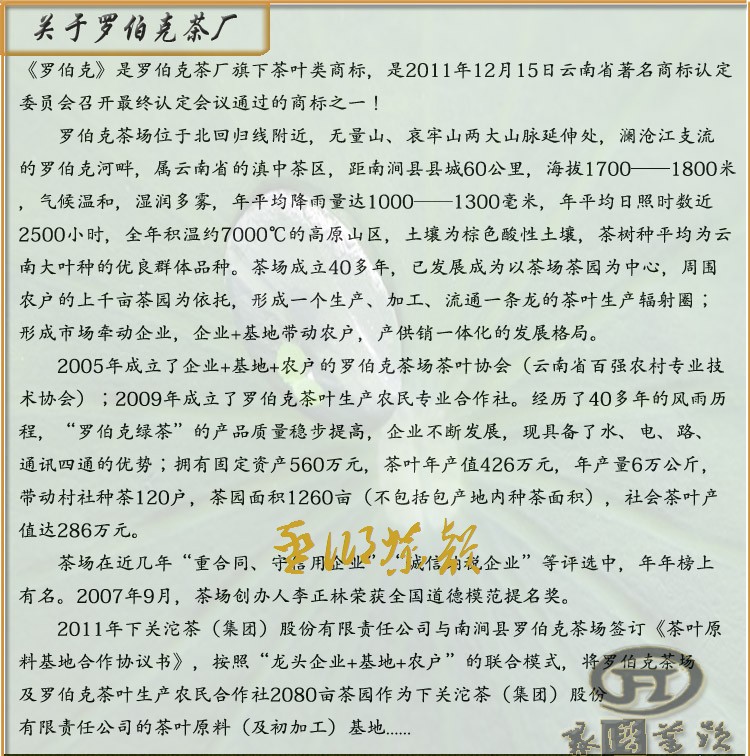 关于罗伯克茶厂
《罗伯克》是罗伯克茶厂旗下茶叶类商标，是2011年12月15日云南省著名商标认定
委员会召开最终认定会议通过的商标之一！
罗伯克茶场位于北回归线附近，无量山、哀牢山两大山脉延伸处，澜沧江支流
的罗伯克河畔，属云南省的滇中茶区，距南涧县县城60公里，海拔1700——1800米
，气候温和，湿润多雾，年平均降雨量达1000——1300毫米，年平均日照时数近
2500小时，全年积温约7000℃的高原山区，土壤为棕色酸性土壤，茶树种平均为云
南大叶种的优良群体品种。茶场成立40多年，已发展成为以茶场茶园为中心，周围
农户的上千亩茶园为依托，形成一个生产、加工、流通一条龙的茶叶生产辐射圈；
形成市场牵动企业，企业+基地带动农户，产供销一体化的发展格局。
2005年成立了企业+基地+农户的罗伯克茶场茶叶协会（云南省百强农村专业技
术协会）；2009年成立了罗伯克茶叶生产农民专业合作社。经历了40多年的风雨历
程，“罗伯克绿茶”的产品质量稳步提高，企业不断发展，现具备了水、电、路、
通讯四通的优势；拥有固定资产560万元，茶叶年产值426万元，年产量6万公斤，
带动村社种茶120户，茶园面积1260亩（不包括包产地内种茶面积），社会茶叶产
值达286万元。
茶场在近几年“重合同、守信用企业”“诚信纳税企业”等评选中，年年榜上
有名。2007年9月，茶场创办人李正林荣获全国道德模范提名奖。
2011年下关沱茶（集团）股份有限责任公司与南涧县罗伯克茶场签订《茶叶原
料基地合作协议书》，按照“龙头企业+基地+农户”的联合模式，将罗伯克茶场
及罗伯克茶叶生产农民合作社2080亩茶园作为下关沱茶（集团）股份
有限责任公司的茶叶原料（及初加工）基地......